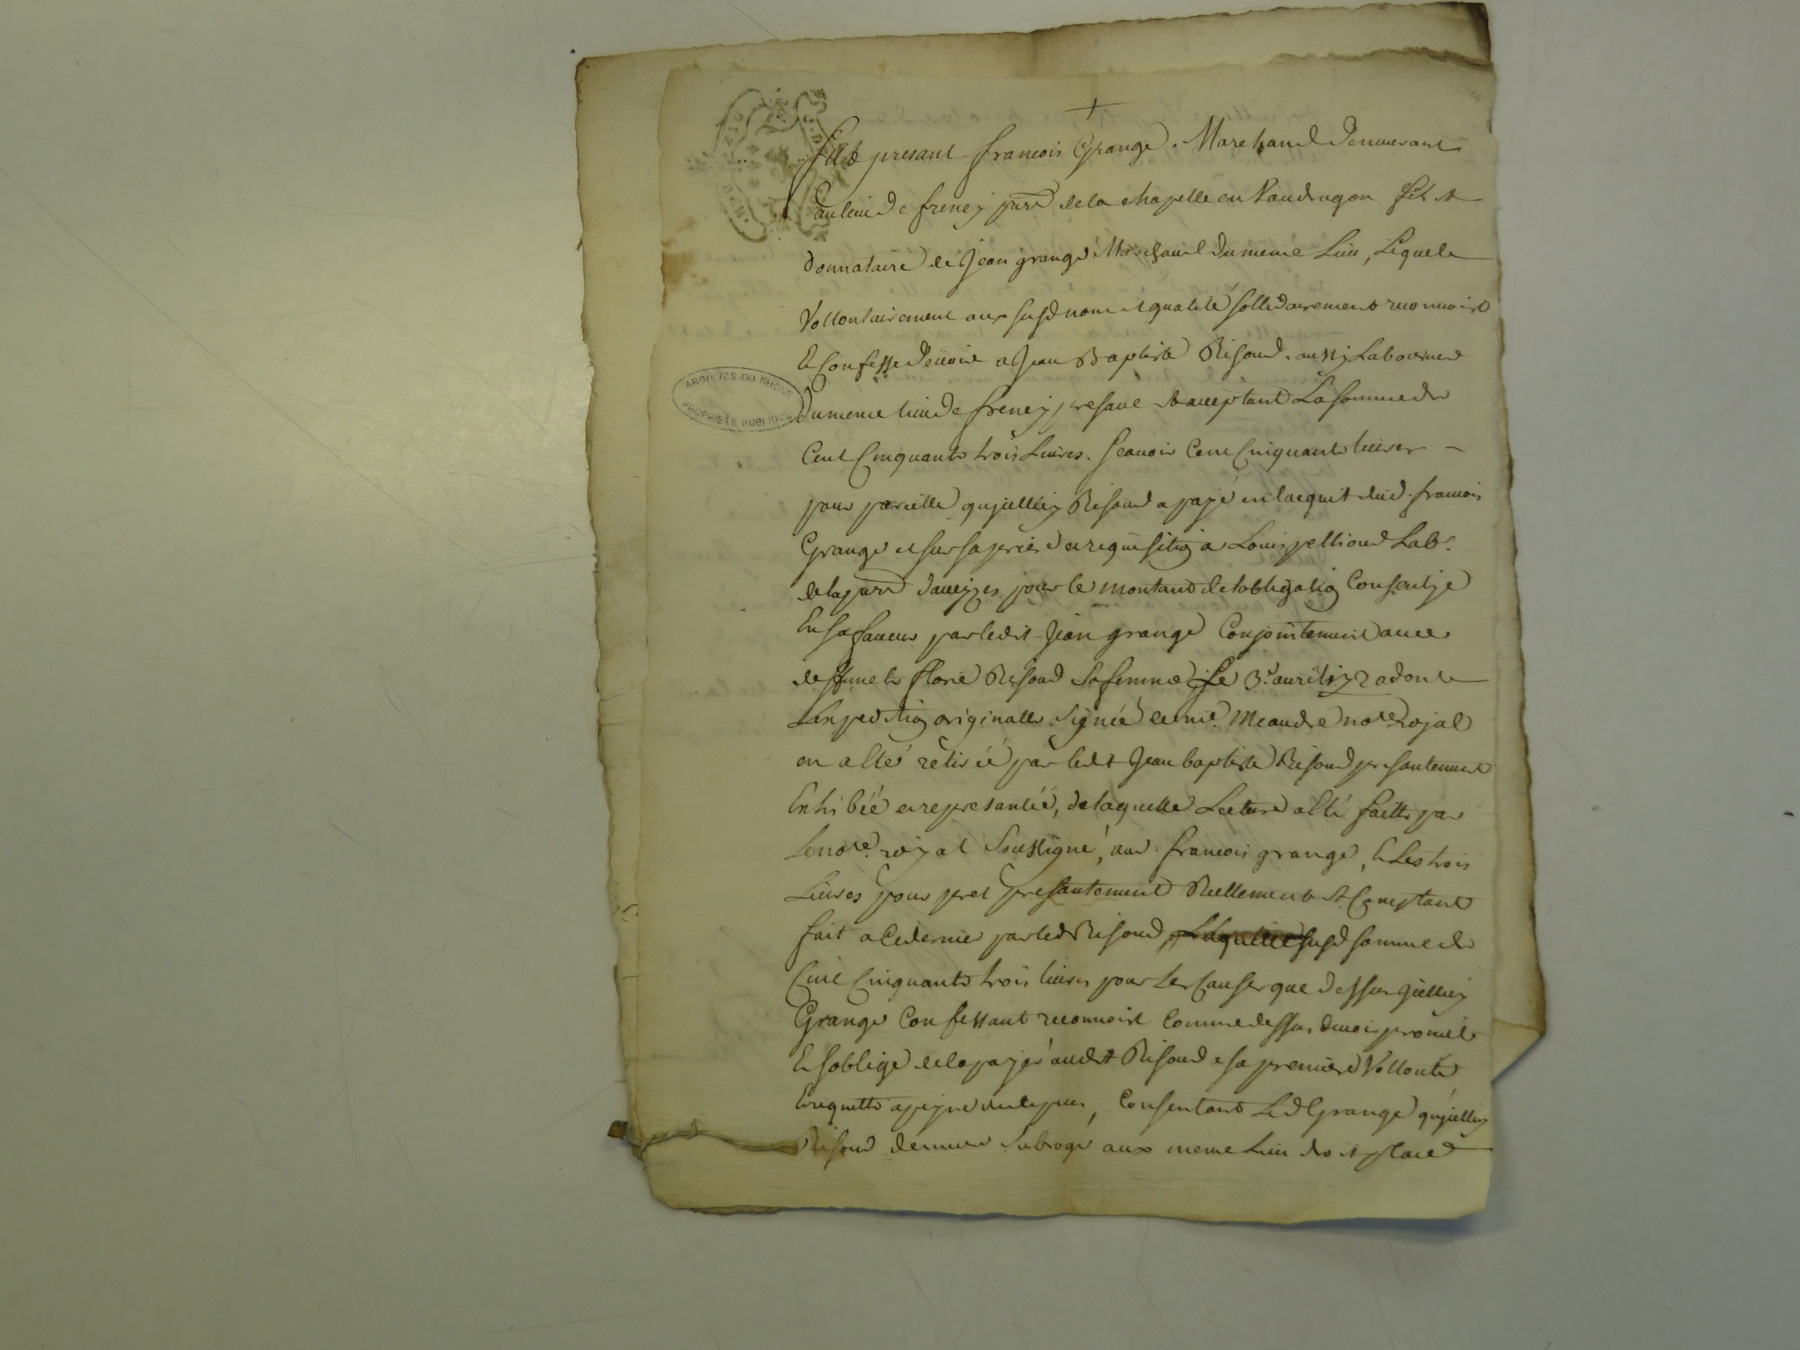 +
fut presant francois Grange Marchand demeurant
au lieu de freney parr de la chapelle en Vaudragon fils et
donnataire de Jean grange Marchand du meme Lieu, Lequel
Vollontairement aux susd nom et qualité sollidairement reconnoist
et Confesse devoir a Jean Baptiste Risoud aussy Laboureur
ARCHIVES DU RHONE
PROPRIETE PUBLIQUE
du meme lieu de freney presant et acceptant La somme de
Cent Cinquante trois Livres. Scavoir Cent Cinquante livres
pour pareille qu'jcelluy Risoud a payé en l'acquit dud. francois
Grange et sur sa priere et requisition a Louis pellioud Lab.r
de la parr d'aveyzes pour le montand de l'obligation Consentije
En sa faveur par ledit Jean grange Conjointement avec
deffunte florie Risoud sa femme le 3.e avril 1772 dont
L'expedition originalle signée de me. Meaudre nore royal
on a Eté retiréé par ledt Jean baptiste Risoud presantement
Exhibéé et represantéé, de laquelle Lecture a Eté faitte par
Le nore. royal Soussigné, aud. francois grange, Et Les trois
Livres pour pret presantement Reellement et Comptant
fait a Ce dernier par led Risoud, susd somme de
Cent Cinquante trois livres pour Les Causes que dessus jcelluy
Grange Confessant reconnoist Comme dessus devoir promet
Et s'oblige de la payer audt Risoud a sa premiere Vollonté
Et requette a peyne de depens, Consentant Led Grange qu'jcelluy
Risoud demeure Subrogé aux meme Lieu droit place